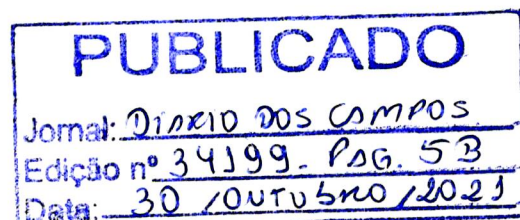 PUBLICADO
Jornal: DIARIO DOS CAMPOS
Edição nº 34199. PAG. 5B
Data: 30 / OUTUBRO / 2021